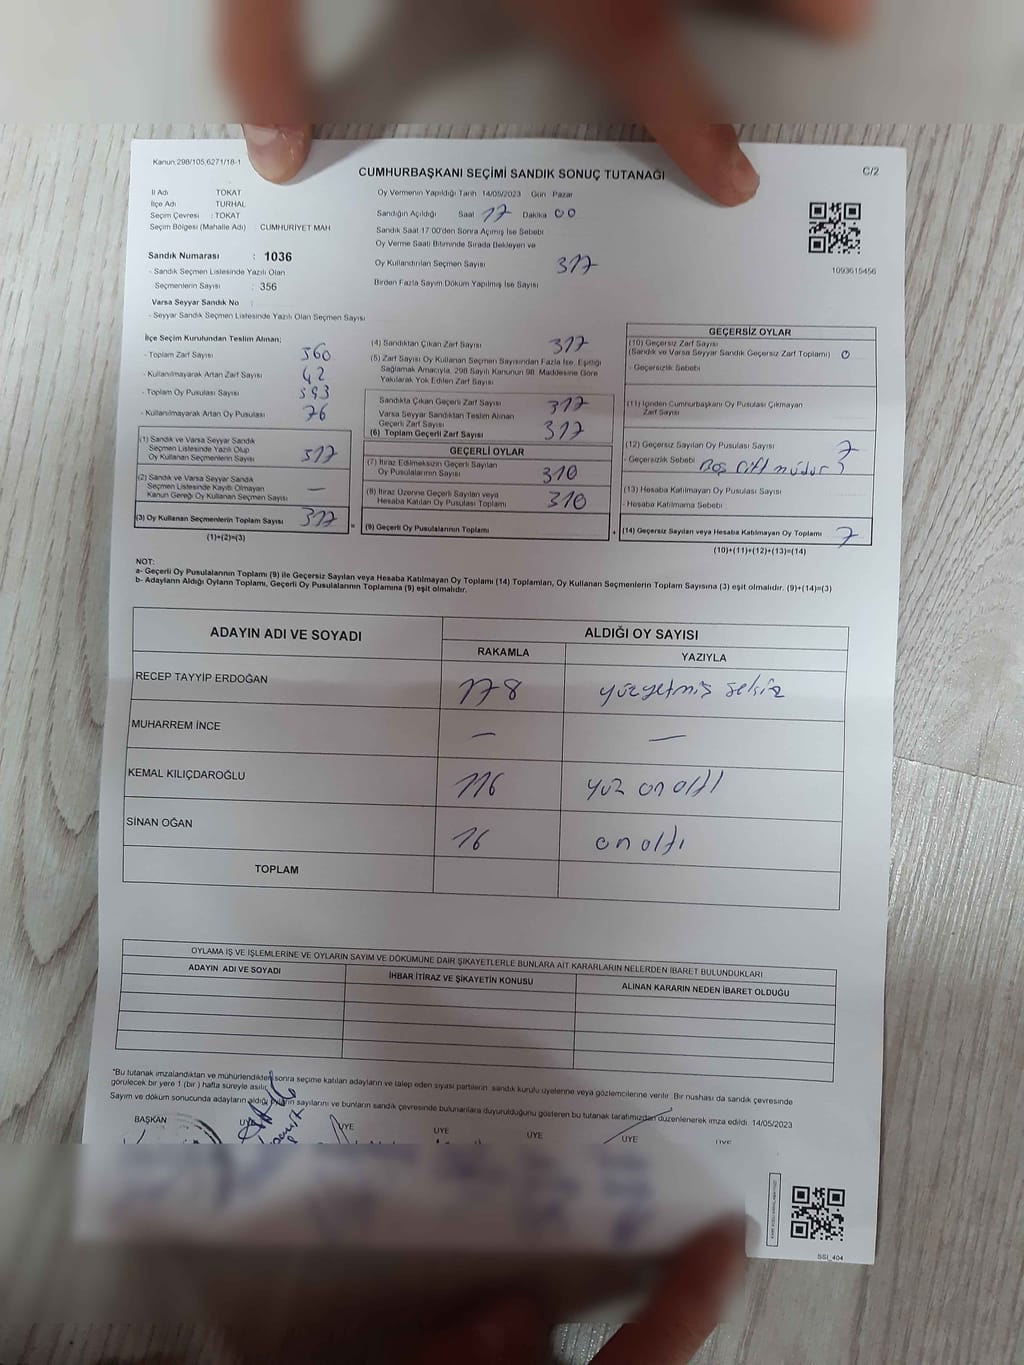 Kanun:298/105,6271/18-1
CUMHURBAŞKANI SEÇİMİ SANDIK SONUÇ TUTANAĞI
C/2
İl Adı TOKAT
İlçe Adı TURHAL
Seçim Çevresi : TOKAT
Seçim Bölgesi (Mahalle Adı) CUMHURİYET MAH
Sandık Numarası : 1036
- Sandık Seçmen Listesinde Yazılı Olan
Seçmenlerin Sayısı : 356
Varsa Seyyar Sandık No :
- Seyyar Sandık Seçmen Listesinde Yazılı Olan Seçmen Sayısı
Oy Vermenin Yapıldığı Tarih 14/05/2023 Gün Pazar
Sandığın Açıldığı Saat 17 Dakika 00
Sandık Saat 17:00'den Sonra Açılmış İse Sebebi
Oy Verme Saati Bitiminde Sırada Bekleyen ve
Oy Kullandırılan Seçmen Sayısı 317
Birden Fazla Sayım Döküm Yapılmış İse Sayısı
1093615456
İlçe Seçim Kurulundan Teslim Alınan;
- Toplam Zarf Sayısı 360
- Kullanılmayarak Artan Zarf Sayısı 42
- Toplam Oy Pusulası Sayısı 393
- Kullanılmayarak Artan Oy Pusulası 76
(1) Sandık ve Varsa Seyyar Sandık
Seçmen Listesinde Yazılı Olup
Oy Kullanan Seçmenlerin Sayısı 317
(2) Sandık ve Varsa Seyyar Sandık
Seçmen Listesinde Kayıtlı Olmayan
Kanun Gereği Oy Kullanan Seçmen Sayısı —
(3) Oy Kullanan Seçmenlerin Toplam Sayısı 317
(1)+(2)=(3)
(4) Sandıktan Çıkan Zarf Sayısı 317
(5) Zarf Sayısı Oy Kullanan Seçmen Sayısından Fazla İse, Eşitliği
Sağlamak Amacıyla, 298 Sayılı Kanunun 98. Maddesine Göre
Yakılarak Yok Edilen Zarf Sayısı
Sandıkta Çıkan Geçerli Zarf Sayısı 317
Varsa Seyyar Sandıktan Teslim Alınan
Geçerli Zarf Sayısı
(6) Toplam Geçerli Zarf Sayısı 317
GEÇERLİ OYLAR
(7) İtiraz Edilmeksizin Geçerli Sayılan
Oy Pusulalarının Sayısı 310
(8) İtiraz Üzerine Geçerli Sayılan veya
Hesaba Katılan Oy Pusulası Toplamı 310
(9) Geçerli Oy Pusulalarının Toplamı
GEÇERSİZ OYLAR
(10) Geçersiz Zarf Sayısı
(Sandık ve Varsa Seyyar Sandık Geçersiz Zarf Toplamı) 0
- Geçersizlik Sebebi
(11) İçinden Cumhurbaşkanı Oy Pusulası Çıkmayan
Zarf Sayısı
(12) Geçersiz Sayılan Oy Pusulası Sayısı 7
- Geçersizlik Sebebi Boş Çift mühür
(13) Hesaba Katılmayan Oy Pusulası Sayısı
- Hesaba Katılmama Sebebi
(14) Geçersiz Sayılan veya Hesaba Katılmayan Oy Toplamı 7
(10)+(11)+(12)+(13)=(14)
NOT:
a- Geçerli Oy Pusulalarının Toplamı (9) ile Geçersiz Sayılan veya Hesaba Katılmayan Oy Toplamı (14) Toplamları, Oy Kullanan Seçmenlerin Toplam Sayısına (3) eşit olmalıdır. (9)+(14)=(3)
b- Adayların Aldığı Oyların Toplamı, Geçerli Oy Pusulalarının Toplamına (9) eşit olmalıdır.
ADAYIN ADI VE SOYADI ALDIĞI OY SAYISI
RAKAMLA YAZIYLA
RECEP TAYYİP ERDOĞAN 178 yüzyetmiş sekiz
MUHARREM İNCE — —
KEMAL KILIÇDAROĞLU 116 yüz on altı
SİNAN OĞAN 16 on altı
TOPLAM
OYLAMA İŞ VE İŞLEMLERİNE VE OYLARIN SAYIM VE DÖKÜMÜNE DAİR ŞİKAYETLERLE BUNLARA AİT KARARLARIN NELERDEN İBARET BULUNDUKLARI
ADAYIN ADI VE SOYADI İHBAR İTİRAZ VE ŞİKAYETİN KONUSU ALINAN KARARIN NEDEN İBARET OLDUĞU
"Bu tutanak imzalandıktan ve mühürlendikten sonra seçime katılan adayların ve talep eden siyasi partilerin sandık kurulu üyelerine veya gözlemcilerine verilir. Bir nüshası da sandık çevresinde
görülecek bir yere 1 (bir) hafta süreyle asılır.
Sayım ve döküm sonucunda adayların aldığı oyların sayılarını ve bunların sandık çevresinde bulunanlara duyurulduğunu gösteren bu tutanak tarafımızdan düzenlenerek imza edildi. 14/05/2023
BAŞKAN ÜYE ÜYE ÜYE ÜYE ÜYE ÜYE
SSI_404